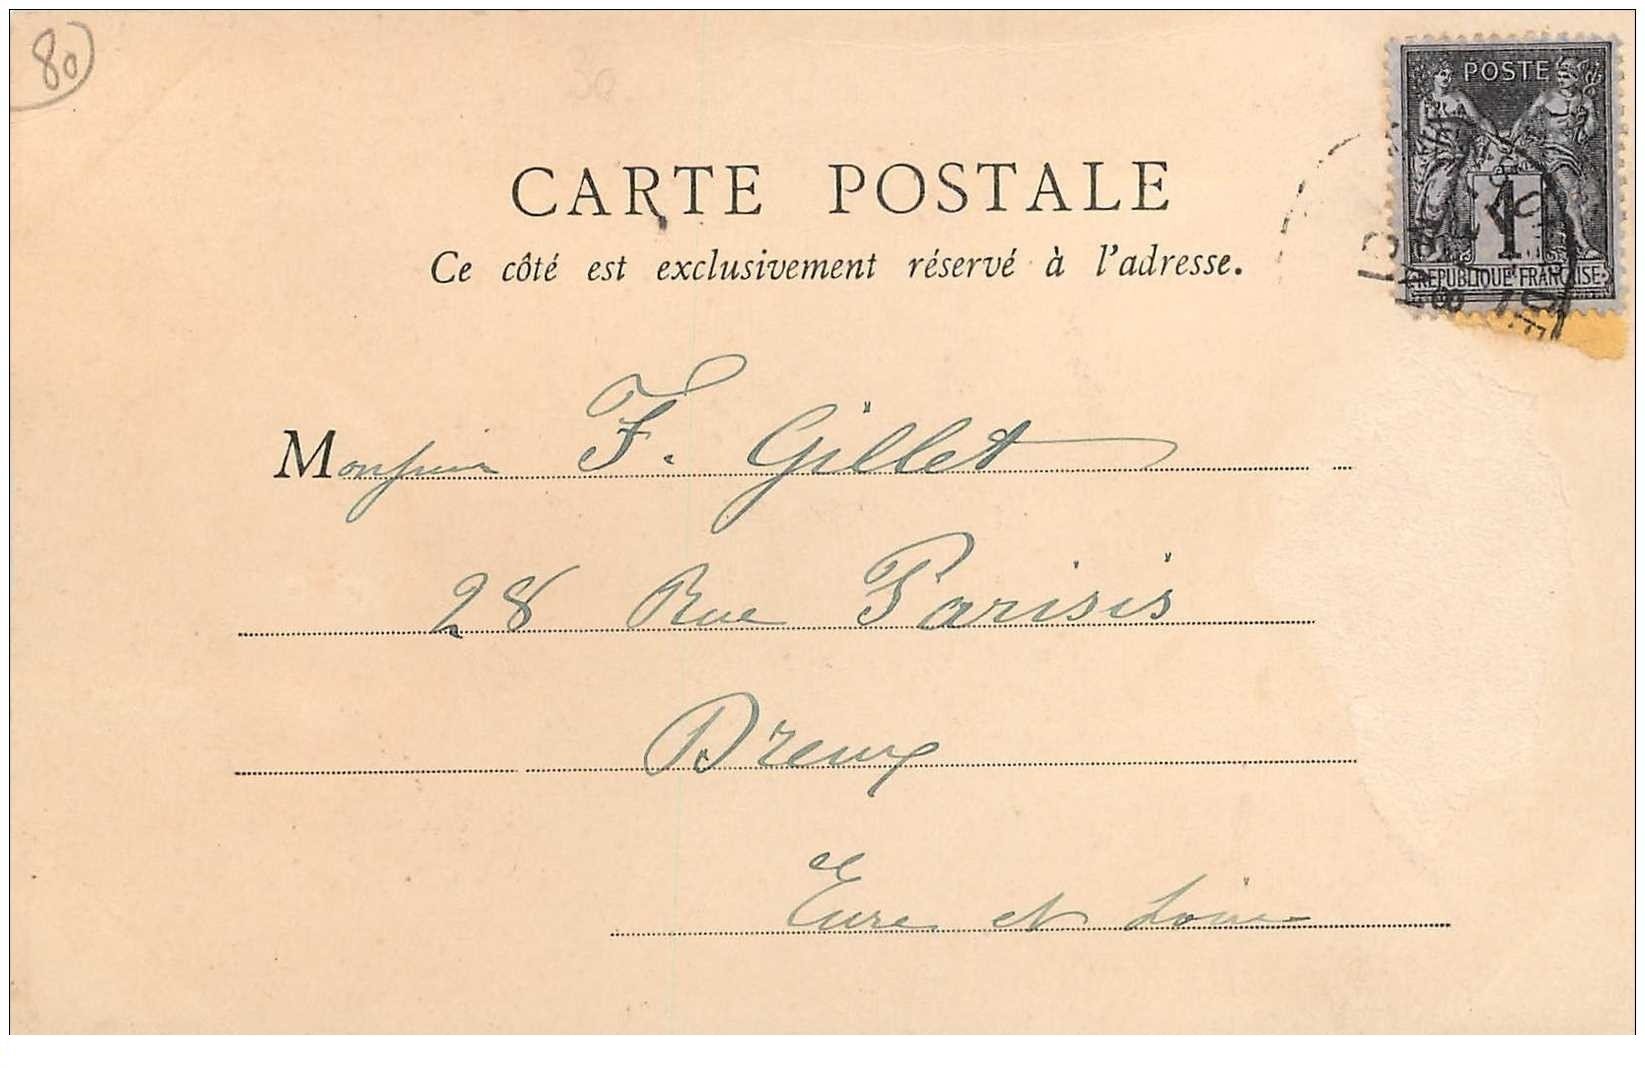 80
30
POSTE
1
REPUBLIQUE FRANÇAISE
CARTE POSTALE
Ce côté est exclusivement réservé à l'adresse.
Monsieur F. Gillet
28 Rue Parisis
Dreux
Eure et Loir